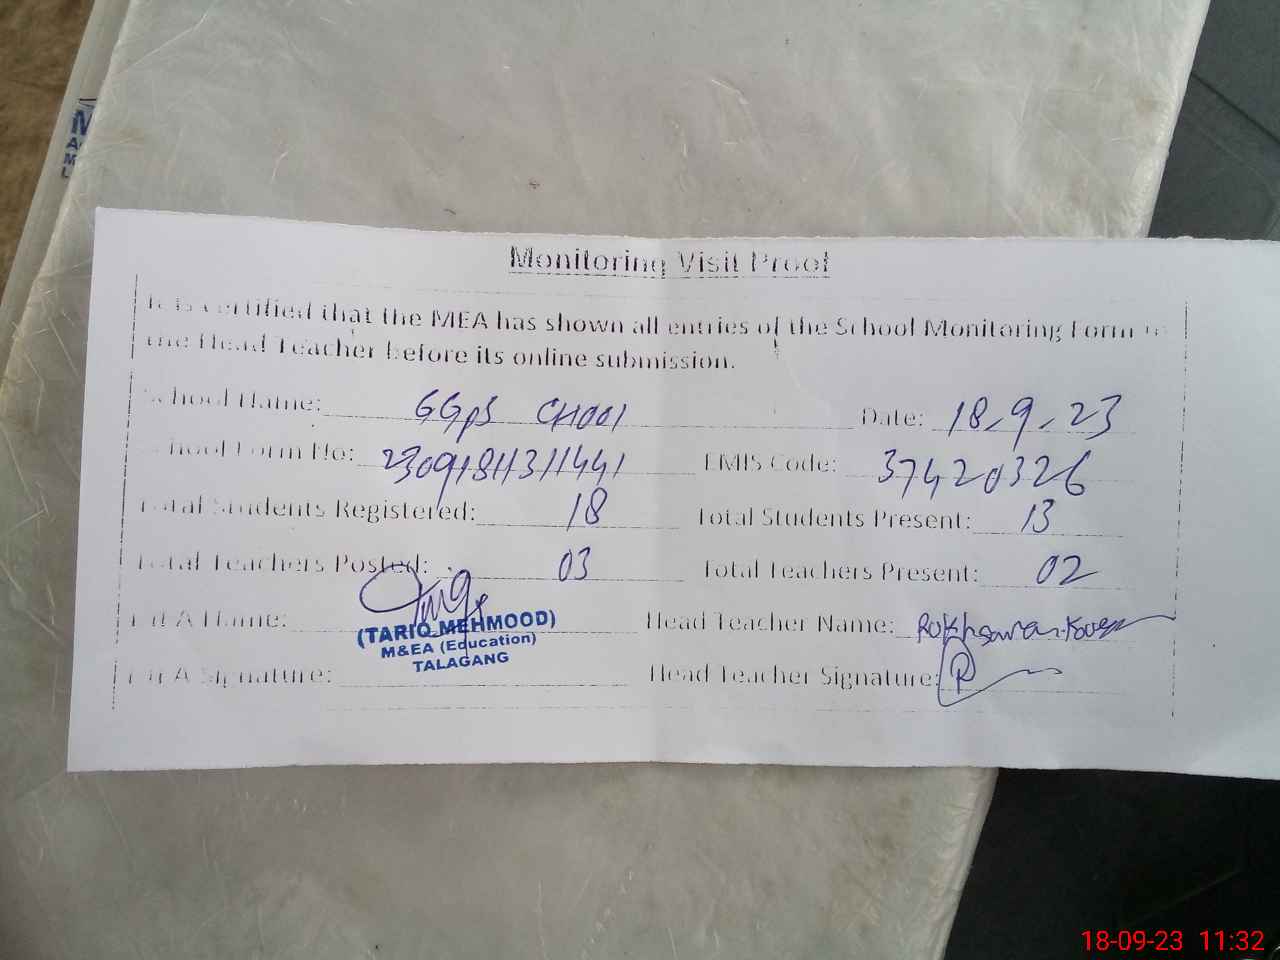 Monitoring Visit Proof
It is certified that the MEA has shown all entries of the School Monitoring Form to
the Head Teacher before its online submission.
School Name: GGPS CHOOI Date: 18-9-23
School Form No: 23091811311441 EMIS Code: 37420326
Total Students Registered: 18 Total Students Present: 13
Total Teachers Posted: 03 Total Teachers Present: 02
MEA Name: Head Teacher Name: Rukhsana
(TARIQ MEHMOOD)
M&EA (Education)
TALAGANG
MEA Signature: Head Teacher Signature:
18-09-23 11:32